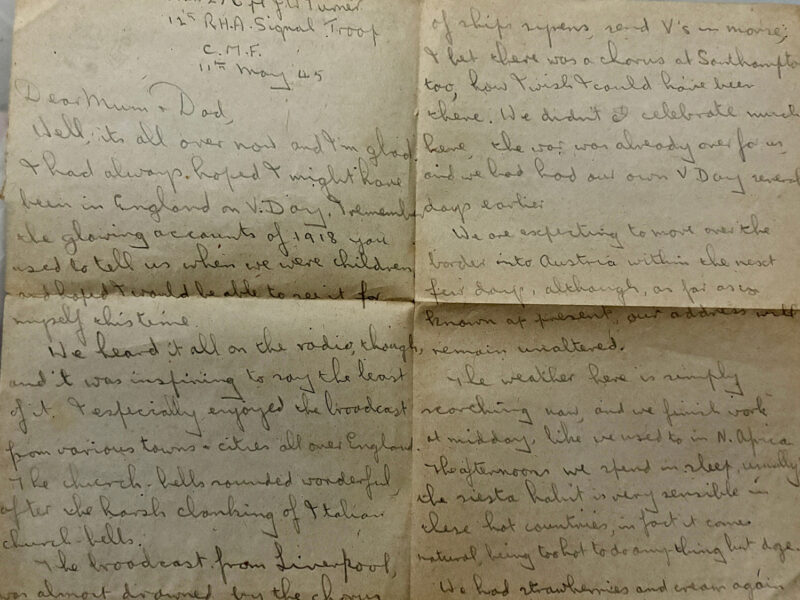 Turner
12th R.H.A. Signal Troop
C.M.F.
11th May 45
Dear Mum & Dad,
Well, its all over now and I'm glad.
I had always hoped I might have
been in England on V. Day. I remember
the glowing accounts of 1918 you
used to tell us when we were children
and hoped I would be able to see it for
myself this time.
We heard it all on the radio, though,
and it was inspiring to say the least
of it. I especially enjoyed the broadcast
from various towns & cities all over England.
The church-bells sounded wonderful,
after the harsh clanking of Italian
church-bells.
The broadcast from Liverpool,
was almost drowned by the chorus
of ships syrens, send V's in morse;
I bet there was a chorus at Southampton
too, how I wish I could have been
there. We didn't celebrate much
here, the war was already over for us,
and we had had our own V Day several
days earlier
We are expecting to move over the
border into Austria within the next
few days, although, as far as is
known at present, our address will
remain unaltered.
The weather here is simply
scorching now, and we finish work
at midday, like we used to in N. Africa
The afternoons we spend in sleep, usually
the siesta habit is very sensible in
these hot countries, in fact it comes
natural, being too hot to do anything but doze.
We had strawberries and cream again